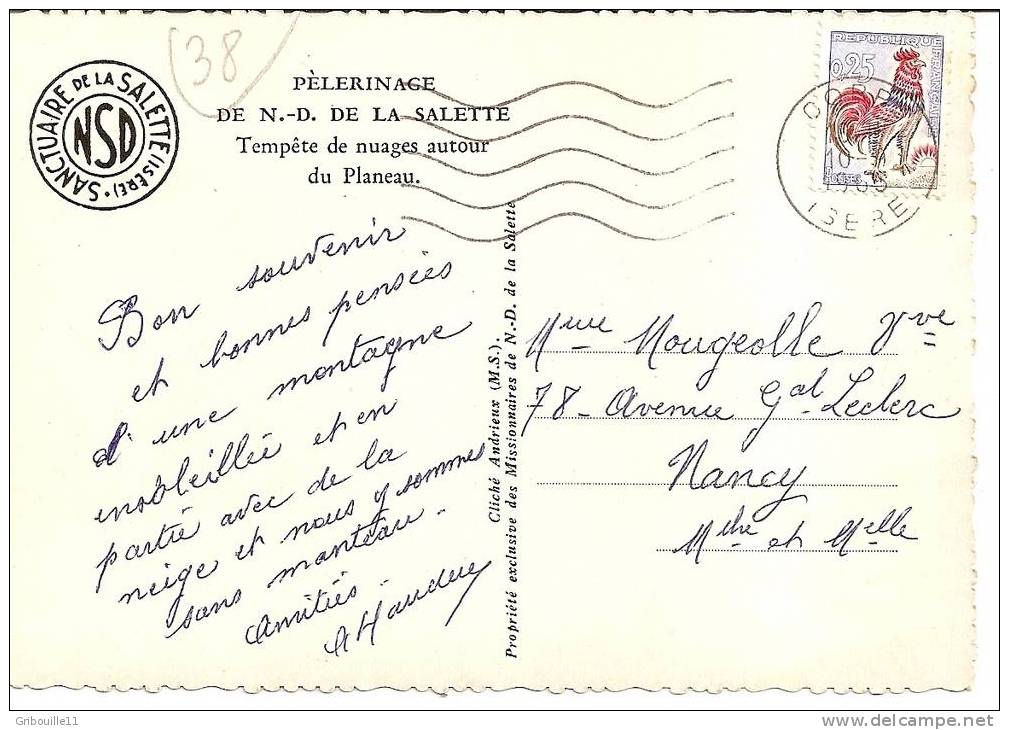 (38)
SANCTUAIRE DE LA SALETTE (ISÈRE)
NSD
PÈLERINAGE
DE N.-D. DE LA SALETTE
Tempête de nuages autour
du Planeau.
REPUBLIQUE
FRANÇAISE
0,25
CORE
10-
ISERE
Bon souvenir
et bonnes pensées
d'une montagne
ensoleillée et en
partie avec de la
neige et nous y sommes
sans manteau.
Amitiés.
Cliché Andrieux (M.S.).
Propriété exclusive des Missionnaires de N.-D. de la Salette
Mme Mougeolle Vve
78- Avenue Gal Leclerc
Nancy
Mthe et Melle
Gribouille11
delcampe.net